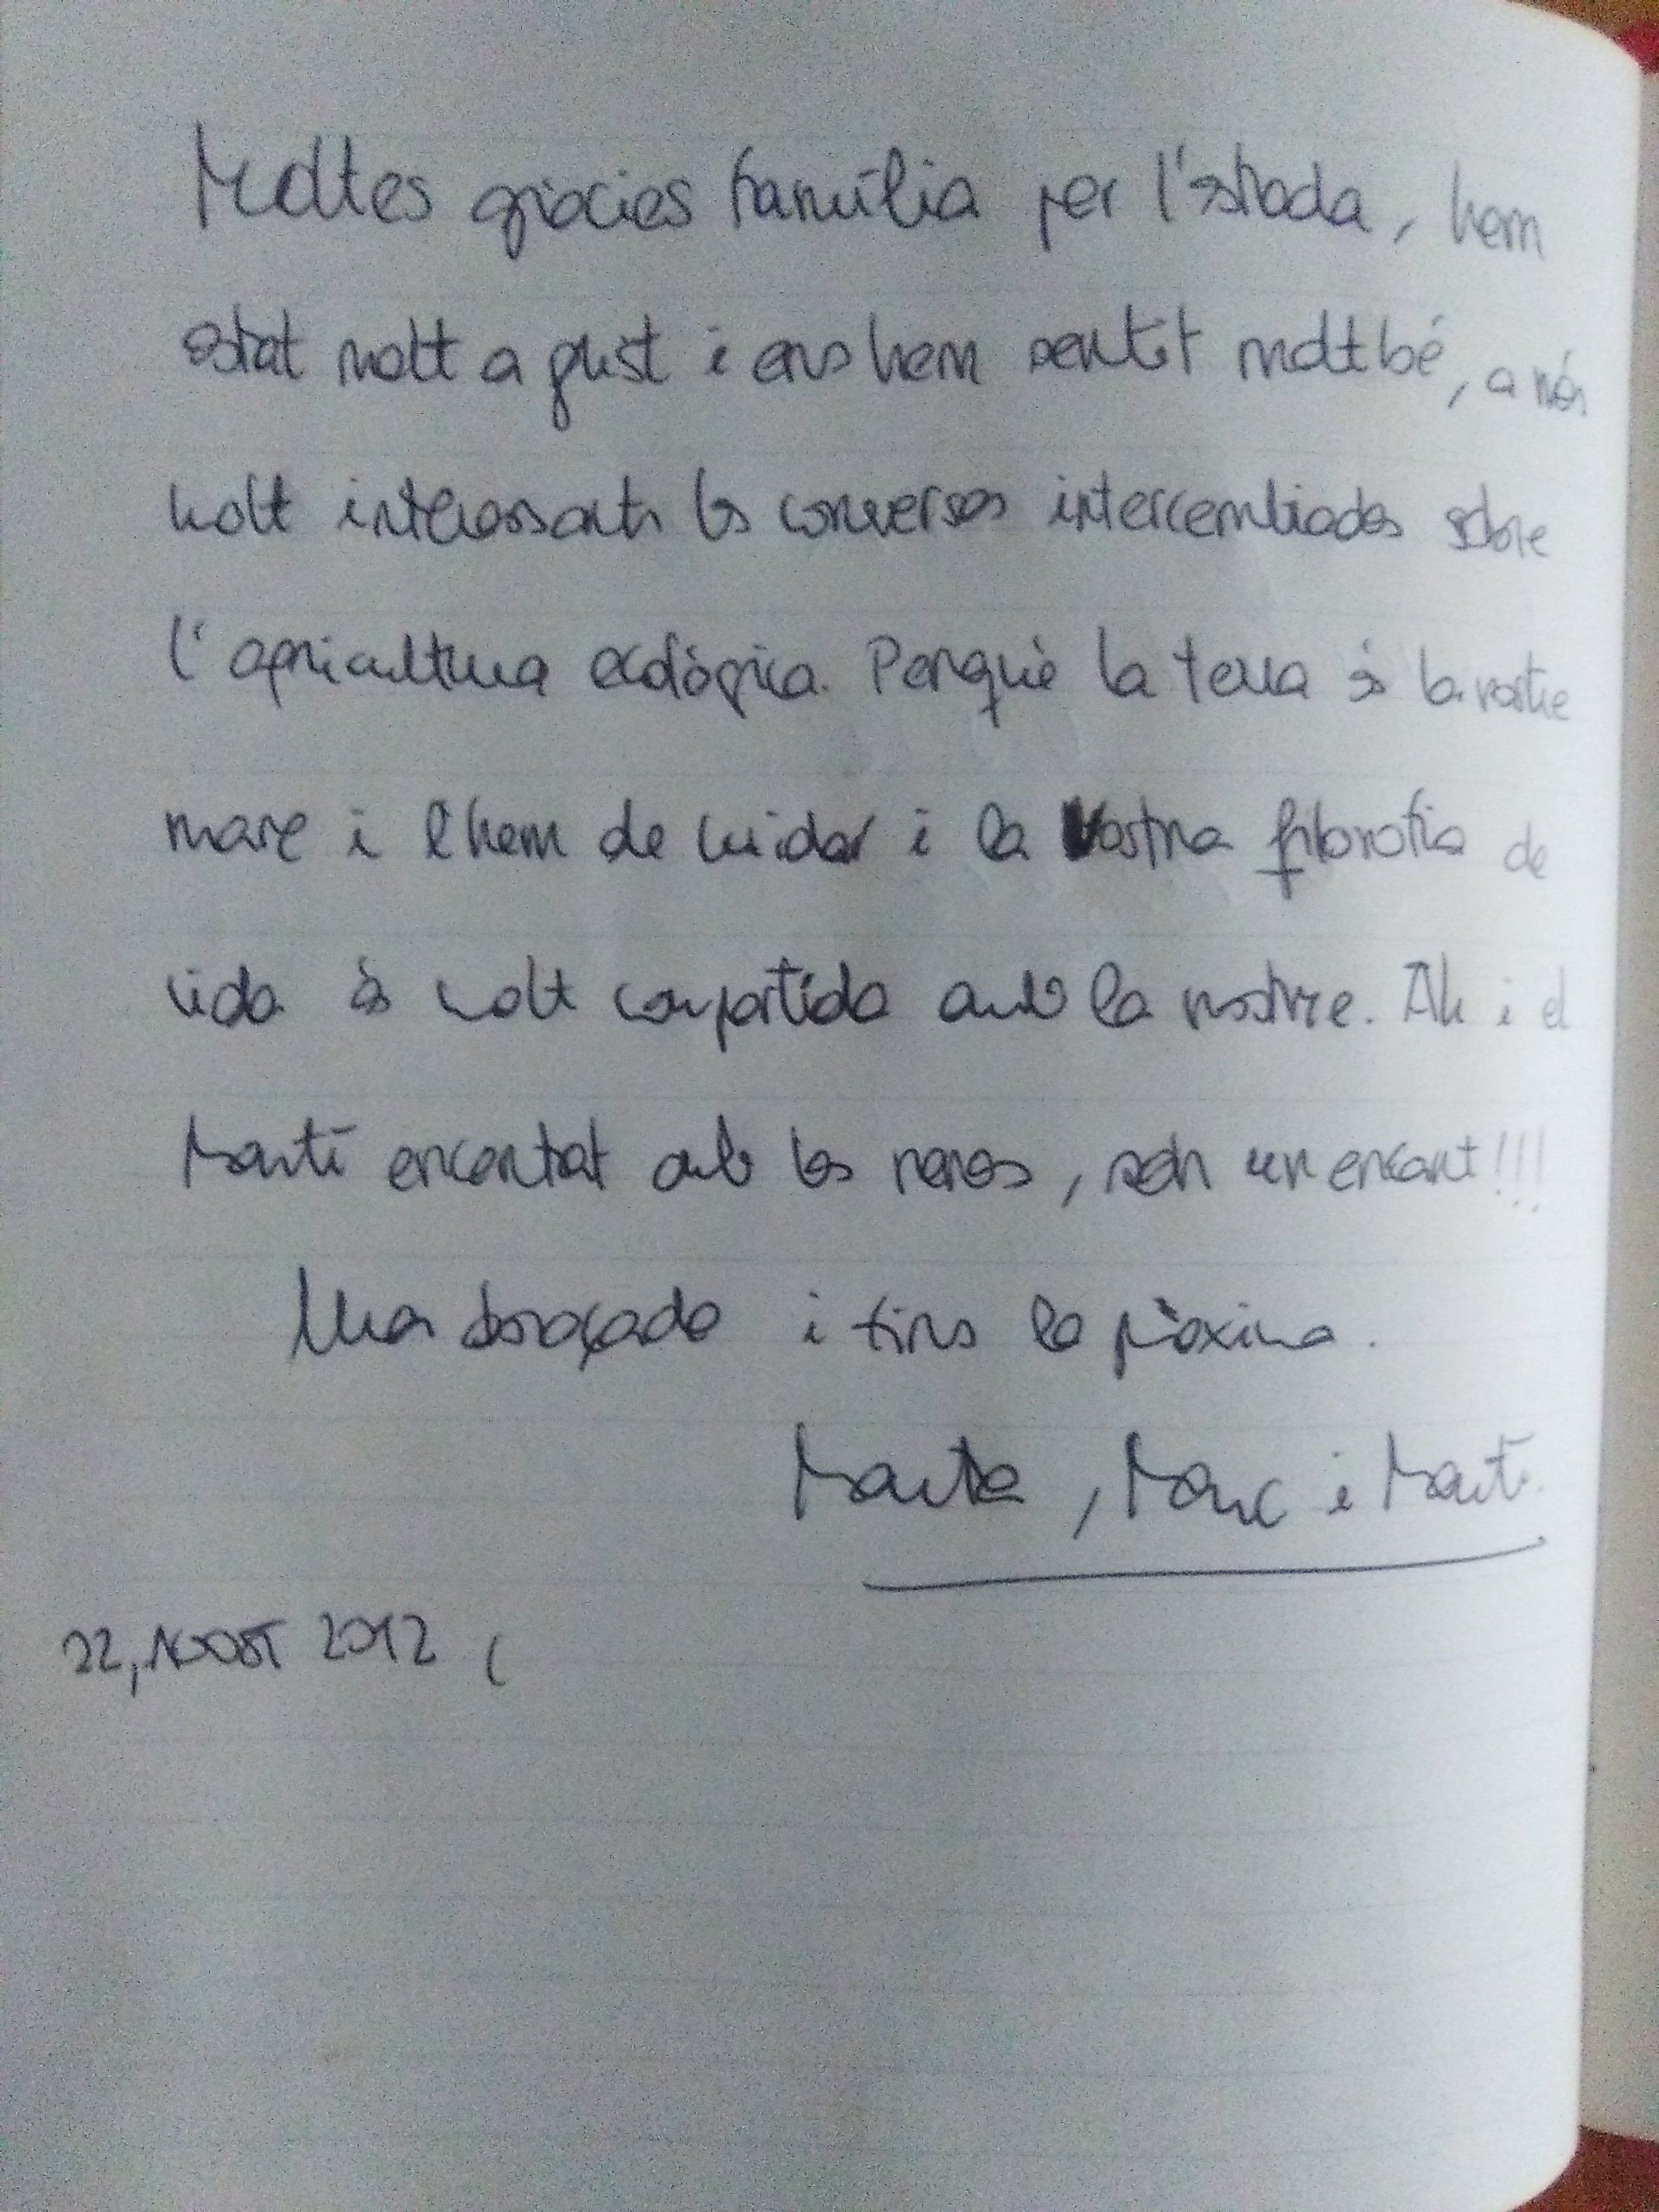 Moltes gràcies família per l'estada, hem
estat molt a gust i ens hem sentit molt bé, a més
molt interessants les converses intercembiades sobre
l'agricultura ecològica. Perquè la terra és la nostre
mare i l'hem de cuidar i la vostra filosofia de
vida és molt compartida amb la nostre. Ah i el
Martí encantat amb les nenes, són un encant!!!
Una abraçada i fins la pròxima.
Marta, Marc i Martí.
22, AGOST 2012